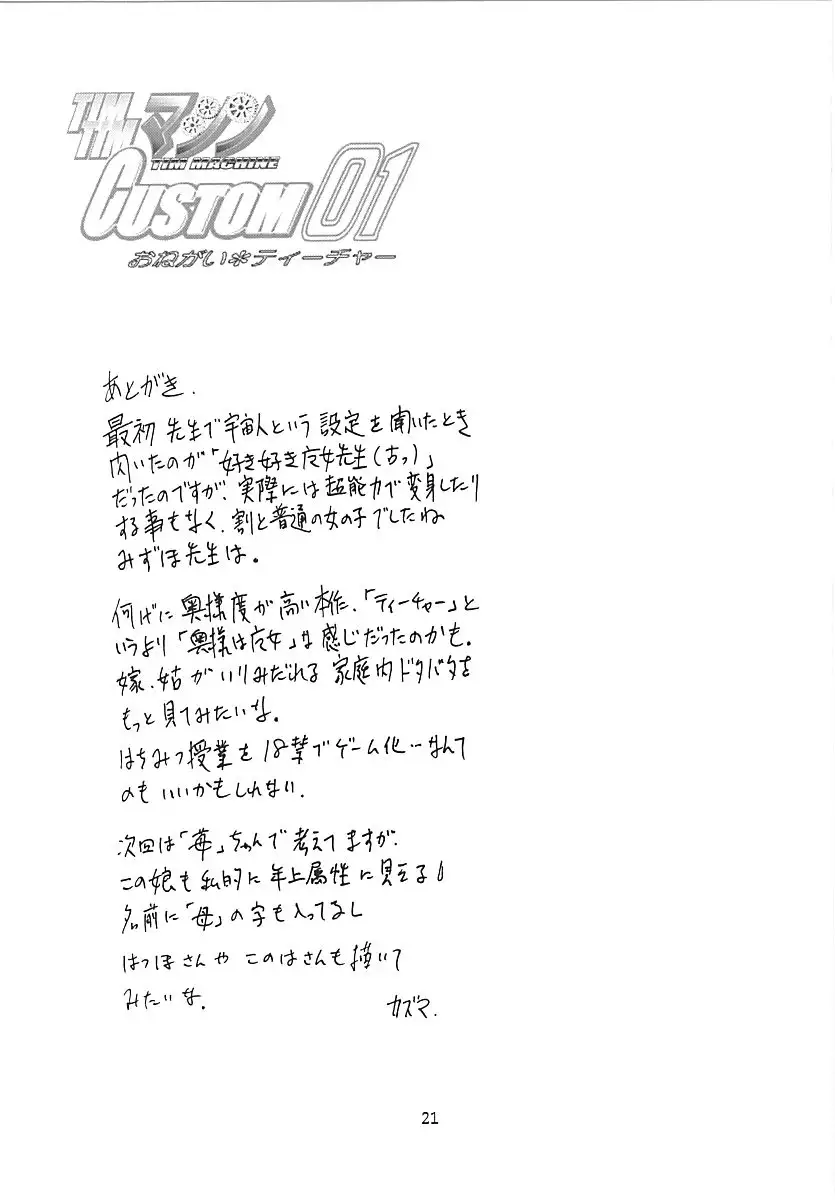 TIM
TIM
マシン
TIM MACHINE
CUSTOM 01
おねがい*ティーチャー
あとがき.
最初 先生で宇宙人という 設定を聞いたとき
聞いたのが「好き好き魔女先生(古っ)」
だったのですが、実際には超能力で変身したり
する事もなく、割と普通の女の子でしたね
みずほ先生は。
何げに奥様度が高い本作、「ティーチャー」と
いうより「奥様は魔女」な感じだったのかも。
嫁、姑がいりみだれる 家庭内ドタバタを
もっと見てみたいな。
はちみつ授業を 18禁でゲーム化…なんて
のもいいかもしれない.
次回は「苺」ちゃんで考えてますが、
この娘も私的に年上属性に見える
名前に「母」の字も入ってるし
はつほさんや このはさんも描いて
みたいな。
カズマ.
21